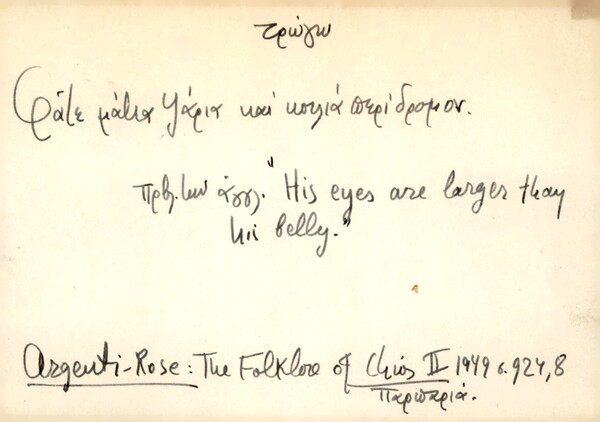 τρώγω
Φάτε μάτια ψάρια καί κοιλιά περίδρομον.
Πρβλ. των άγγλ. "His eyes are larger than
his belly."
Argenti-Rose: The Folklore of Chios II 1949 σ. 924,8
Παρπαριά.